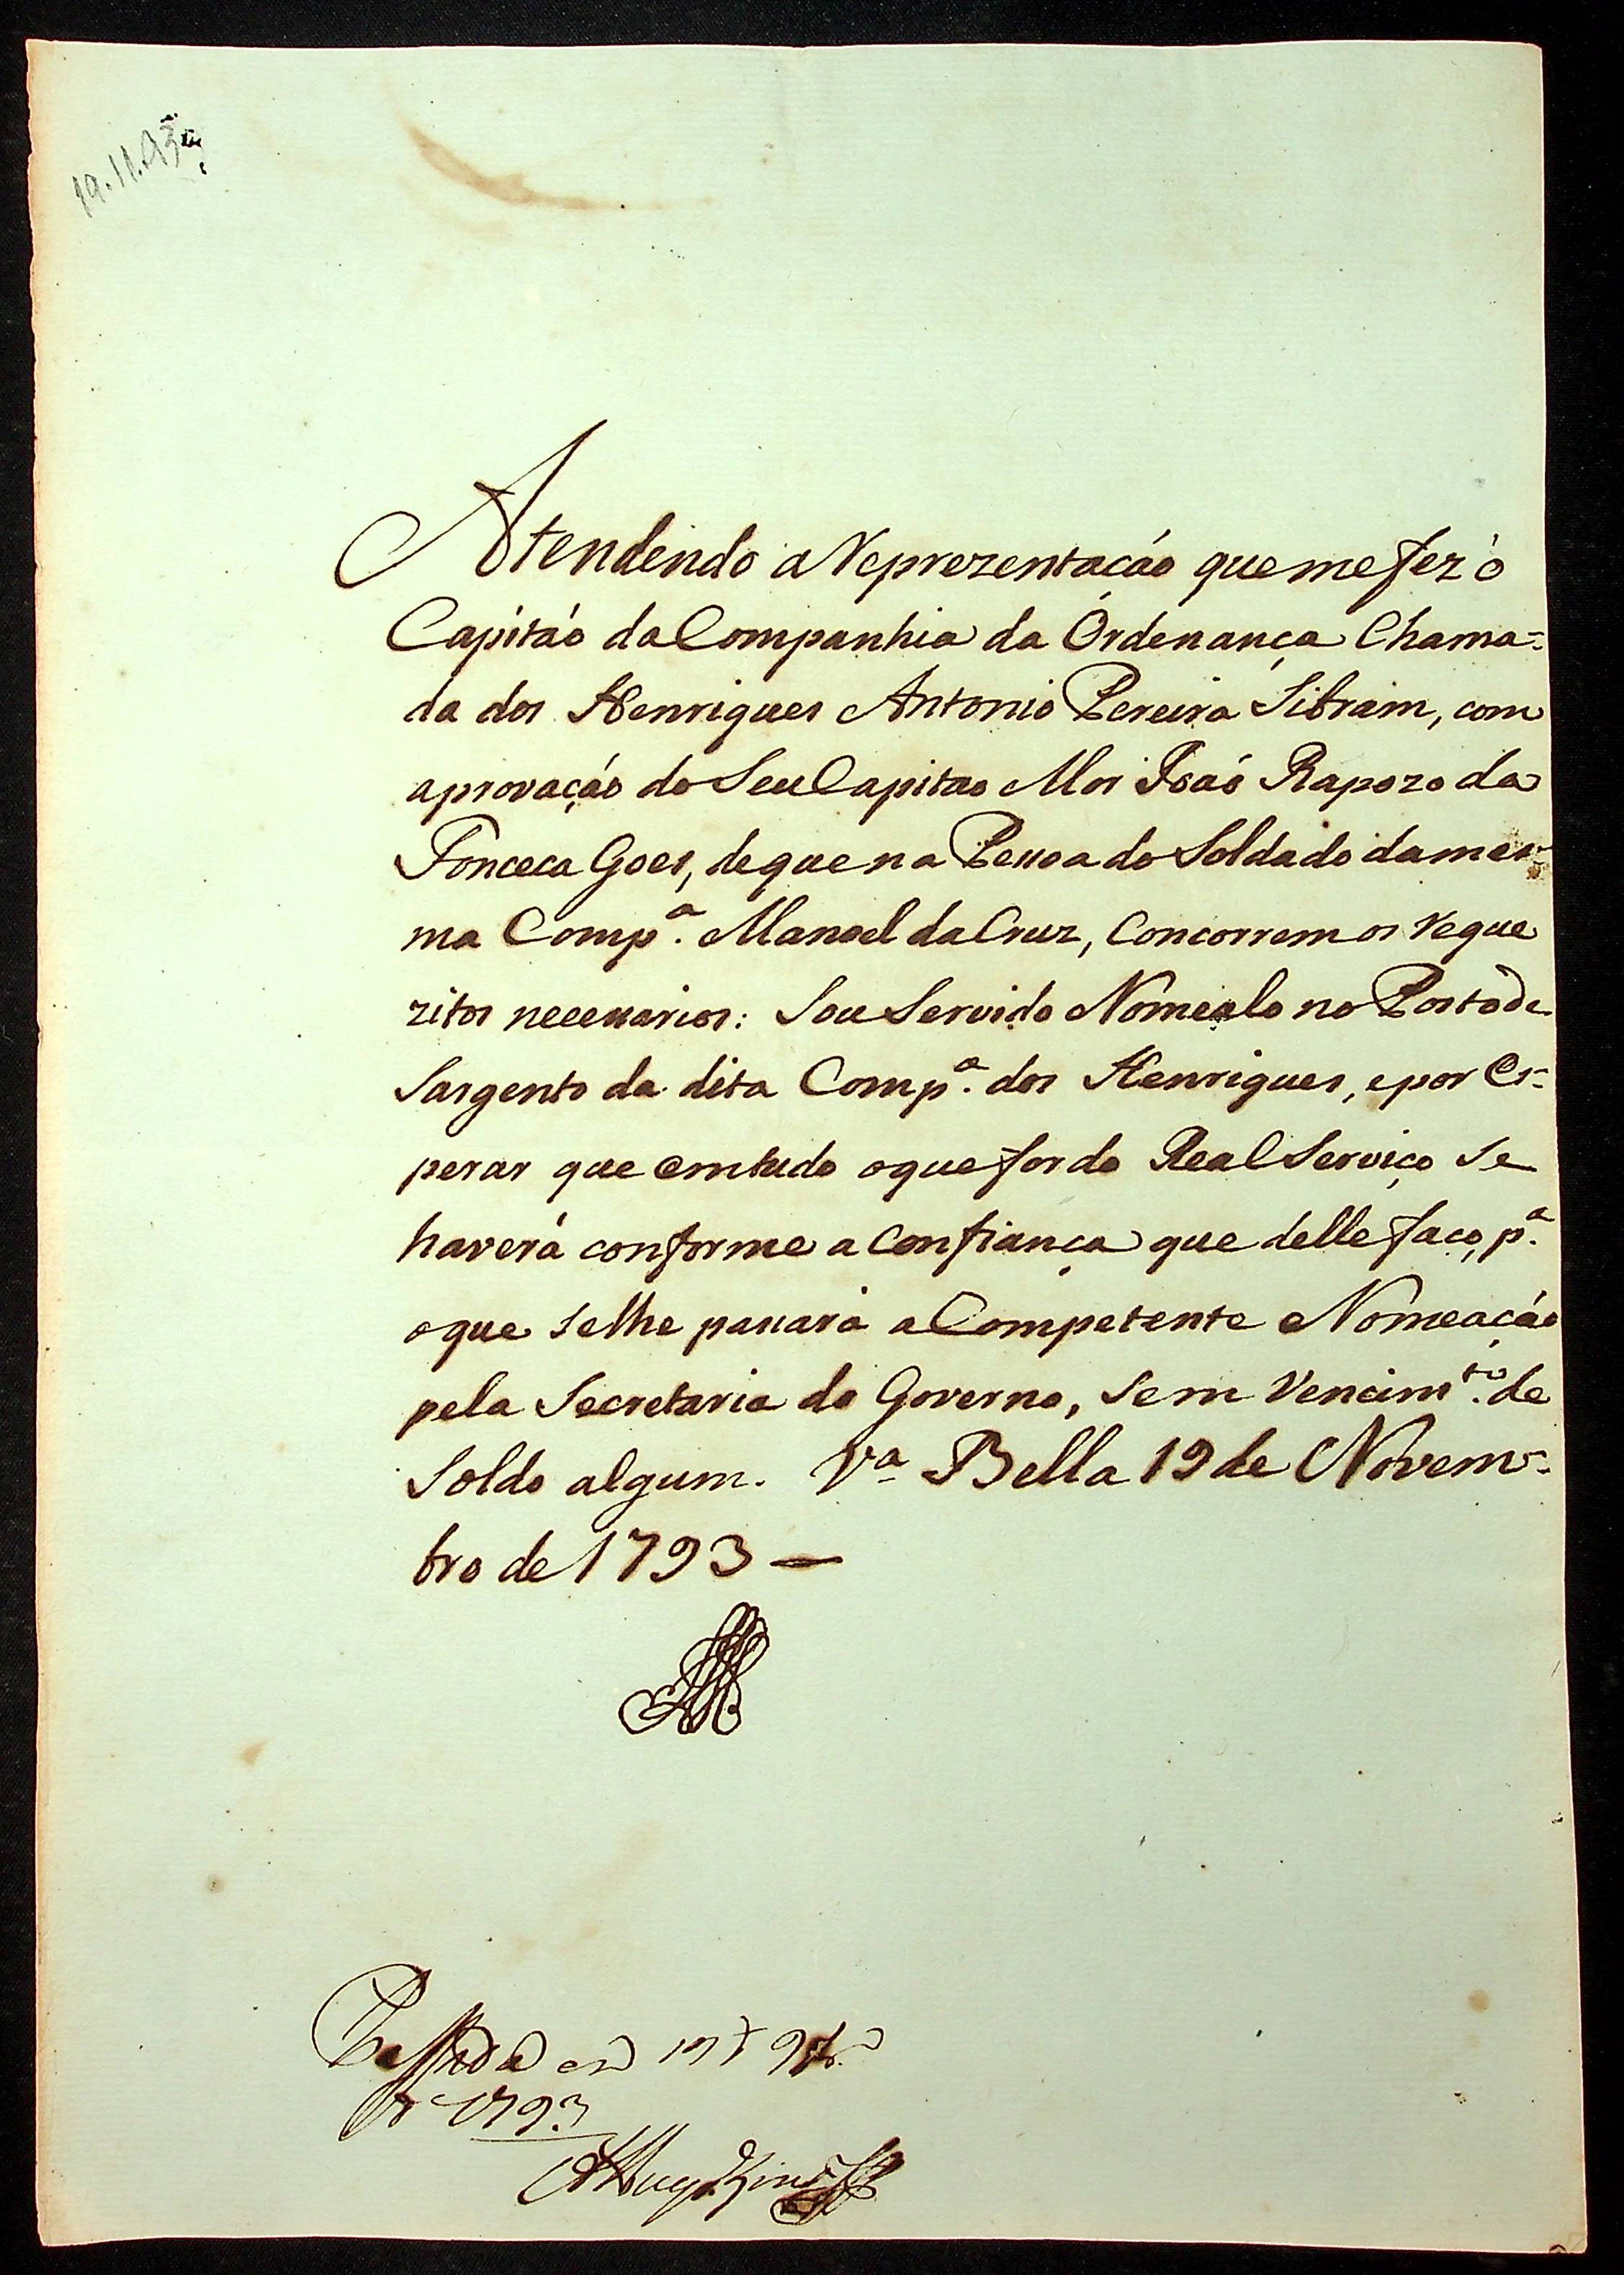 19.11.93
Atendendo a Reprezentaçáo que me fez ó
Capitáo da Companhia da Ordenança Chama=
da dos Henriques Antonio Pereira Sibram, com
aprovaçáo do Seu Capitao Mor Joaó Rapozo da
Fonceca Goes, de que na Pessoa do Soldado da mes-
ma Comp.ª Manoel da Cruz, Concorrem os reque
zitos necessarios: Sou Servido Nomealo no Posto de
Sargento da dita Comp.ª dos Henriques, e por Es=
perar que em tudo o que for do Real Serviço Se
haverá conforme a Confiança que delle faço, p.ª
o que Selhe passará a Competente Nomeaçáo
pela Secretaria do Governo, Sem Vencim.to de
Soldo algum. V.ª Bella 19 de Novem-
bro de 1793 —
Passada em 19
de 1793